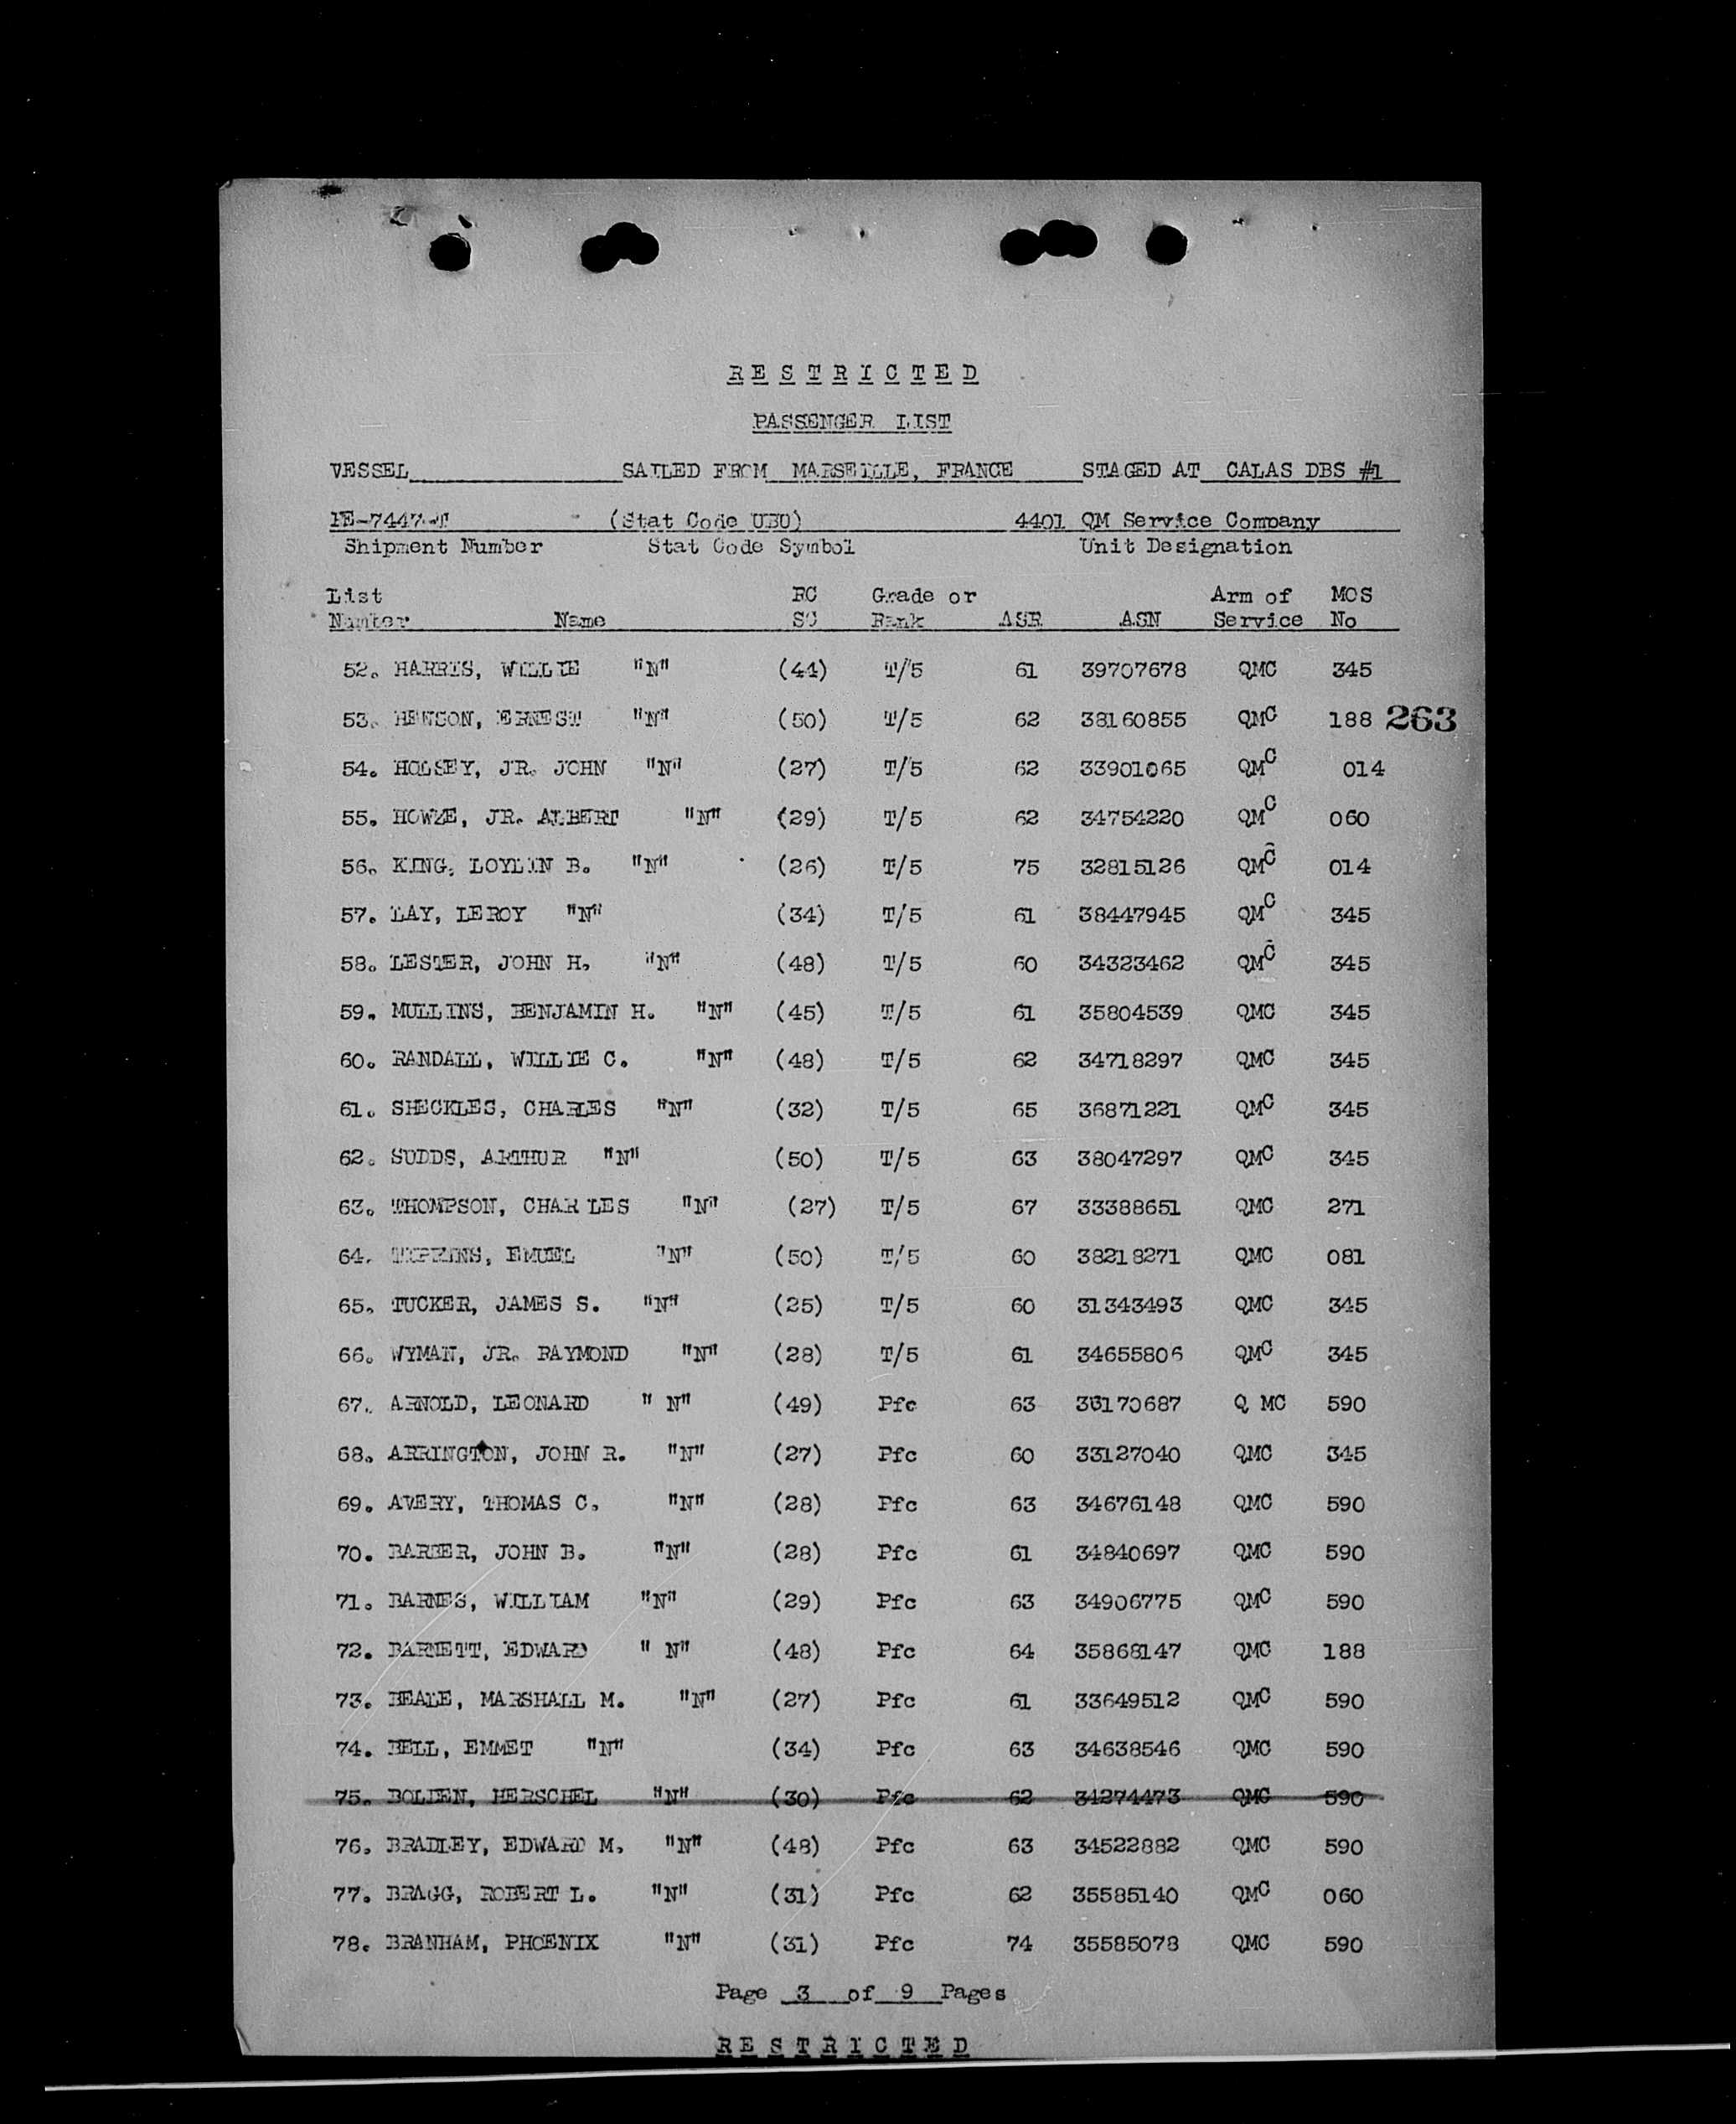 RESTRICTED
PASSENGER LIST
VESSEL SAILED FROM MARSEILLE, FRANCE STAGED AT CALAS DBS #1
RE-7447-T (Stat Code UBU) 4401 QM Service Company
Shipment Number Stat Code Symbol Unit Designation
List RC Grade or Arm of MOS
Number Name SC Rank ASR ASN Service No
52. HARRIS, WILLIE "N" (44) T/5 61 39707678 QMC 345
53. HEWSON, ERNEST "N" (50) T/5 62 38160855 QMC 188 263
54. HOLSEY, JR. JOHN "N" (27) T/5 62 33901065 QMC 014
55. HOWZE, JR. ALBERT "N" (29) T/5 62 34754220 QMC 060
56. KING, LOYLIN B. "N" (26) T/5 75 32815126 QMC 014
57. LAY, LEROY "N" (34) T/5 61 38447945 QMC 345
58. LESTER, JOHN H. "N" (48) T/5 60 34323462 QMC 345
59. MULLINS, BENJAMIN H. "N" (45) T/5 61 35804539 QMC 345
60. RANDALL, WILLIE C. "N" (48) T/5 62 34718297 QMC 345
61. SHECKLES, CHARLES "N" (32) T/5 65 36871221 QMC 345
62. SUDDS, ARTHUR "N" (50) T/5 63 38047297 QMC 345
63. THOMPSON, CHARLES "N" (27) T/5 67 33388651 QMC 271
64. EMUEL "N" (50) T/5 60 38218271 QMC 081
65. TUCKER, JAMES S. "N" (25) T/5 60 31343493 QMC 345
66. WYMAN, JR. RAYMOND "N" (28) T/5 61 34655806 QMC 345
67. ARNOLD, LEONARD " N" (49) Pfc 63 QMC 590
68. ARRINGTON, JOHN R. "N" (27) Pfc 60 33127040 QMC 345
69. AVERY, THOMAS C. "N" (28) Pfc 63 34676148 QMC 590
70. BARBER, JOHN B. "N" (28) Pfc 61 34840697 QMC 590
71. BARNES, WILLIAM "N" (29) Pfc 63 34906775 QMC 590
72. BARNETT, EDWARD " N" (48) Pfc 64 35868147 QMC 188
73. BEALE, MARSHALL M. "N" (27) Pfc 61 33649512 QMC 590
74. BELL, EMMET "N" (34) Pfc 63 34638546 QMC 590
75. BOLDEN, HERSCHEL "N" (30) Pfc 62 34274473 QMC 590
76. BRADLEY, EDWARD M. "N" (48) Pfc 63 34522882 QMC 590
77. BRAGG, ROBERT L. "N" (31) Pfc 62 35585140 QMC 060
78. BRANHAM, PHOENIX "N" (31) Pfc 74 35585078 QMC 590
Page 3 of 9 Pages
RESTRICTED